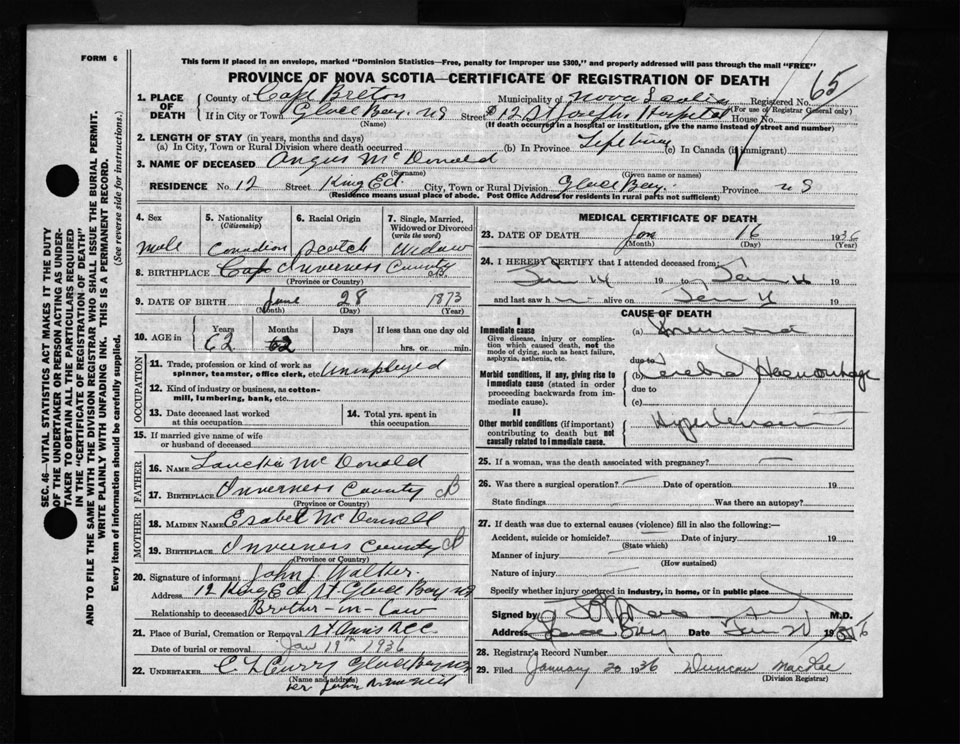 FORM 6
This form if placed in an envelope, marked "Dominion Statistics—Free, penalty for improper use $300," and properly addressed will pass through the mail "FREE"
PROVINCE OF NOVA SCOTIA—CERTIFICATE OF REGISTRATION OF DEATH
65
1. PLACE OF DEATH
County of Cape Breton Municipality of Nova Scotia Registered No. (For use of Registrar General only)
If in City or Town Glace Bay NS (Name) Street 12 St Josephs Hospital House No.
(If death occurred in a hospital or institution, give the name instead of street and number)
2. LENGTH OF STAY (in years, months and days)
(a) In City, Town or Rural Division where death occurred (b) In Province Lifetime (c) In Canada (if immigrant)
3. NAME OF DECEASED Angus McDonald
(Surname) (Given name or names)
RESIDENCE No. 12 Street King Ed. City, Town or Rural Division Glace Bay. Province NS
(Residence means usual place of abode. Post Office Address for residents in rural parts not sufficient)
4. Sex Male
5. Nationality (Citizenship) Canadian
6. Racial Origin Scotch
7. Single, Married, Widowed or Divorced (write the word) Widow
8. BIRTHPLACE Inverness County CB.
(Province or Country)
9. DATE OF BIRTH June 28 1873
(Month) (Day) (Year)
10. AGE in Years Months Days If less than one day old
62 hrs. or min.
OCCUPATION
11. Trade, profession or kind of work as spinner, teamster, office clerk, etc. Unemployed
12. Kind of industry or business, as cotton-mill, lumbering, bank, etc.
13. Date deceased last worked at this occupation
14. Total yrs. spent in this occupation
15. If married give name of wife or husband of deceased
FATHER
16. NAME McDonald
17. BIRTHPLACE Inverness County CB
(Province or Country)
MOTHER
18. MAIDEN NAME McDonald
19. BIRTHPLACE Inverness County CB
(Province or Country)
20. Signature of informant John J Walker.
Address 12 King Ed St Glace Bay NS
Relationship to deceased Brother-in-law
21. Place of Burial, Cremation or Removal St Anns
Date of burial or removal Jan 19th 1936
22. UNDERTAKER C L Curry Glace Bay NS
(Name and address)
per John
MEDICAL CERTIFICATE OF DEATH
23. DATE OF DEATH Jan 16 1936
(Month) (Day) (Year)
24. I HEREBY CERTIFY that I attended deceased from:
Jan 14 19 to Jan 19
and last saw h alive on Jan 19
CAUSE OF DEATH
I
Immediate cause
Give disease, injury or complication which caused death, not the mode of dying, such as heart failure, asphyxia, asthenia, etc.
(a)
due to
Morbid conditions, if any, giving rise to immediate cause (stated in order proceeding backwards from immediate cause).
(b) Cerebral Haemorrhage
due to
(c)
II
Other morbid conditions (if important) contributing to death but not causally related to immediate cause.
Hypertension
25. If a woman, was the death associated with pregnancy?
26. Was there a surgical operation? Date of operation 19
State findings Was there an autopsy?
27. If death was due to external causes (violence) fill in also the following:—
Accident, suicide or homicide? Date of injury 19
(State which)
Manner of injury
(How sustained)
Nature of injury
Specify whether injury occurred in industry, in home, or in public place
Signed by M.D.
Address Glace Bay Date Jan 20 1936
28. Registrar's Record Number
29. Filed January 20 1936 Duncan MacRae
(Division Registrar)
SEC. 46—VITAL STATISTICS ACT MAKES IT THE DUTY
OF THE UNDERTAKER OR PERSON ACTING AS UNDER-
TAKER TO OBTAIN ALL THE PARTICULARS REQUIRED
IN THE "CERTIFICATE OF REGISTRATION OF DEATH"
AND TO FILE THE SAME WITH THE DIVISION REGISTRAR WHO SHALL ISSUE THE BURIAL PERMIT.
WRITE PLAINLY WITH UNFADING INK. THIS IS A PERMANENT RECORD.
Every item of information should be carefully supplied. (See reverse side for instructions.)